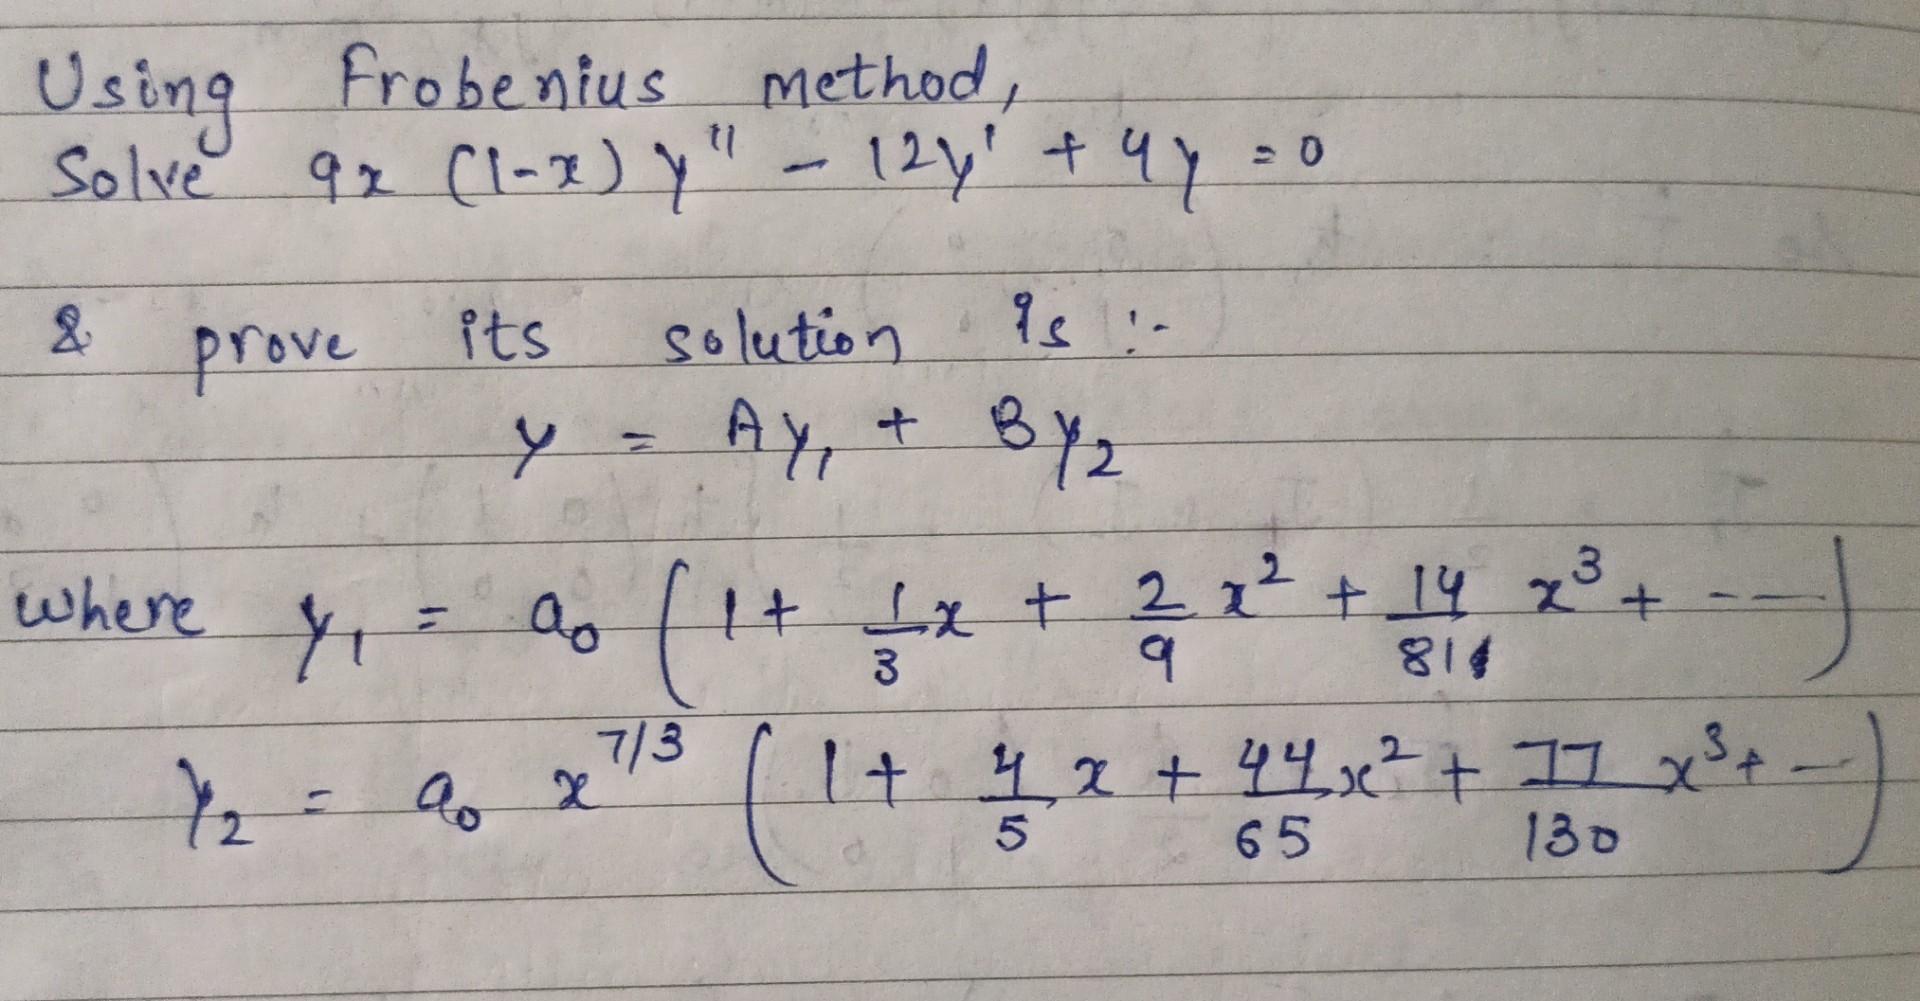 Using Frobenius method,
Solve 9x (1-x) y" - 12y' + 4y = 0
& prove its solution is :-
y = Ay₁ + By₂
where y₁ = a₀ (1 + 1/3 x + 2/9 x² + 14/81 x³ + ---)
y₂ = a₀ x^7/3 (1 + 4/5 x + 44/65 x² + 77/130 x³ + --)